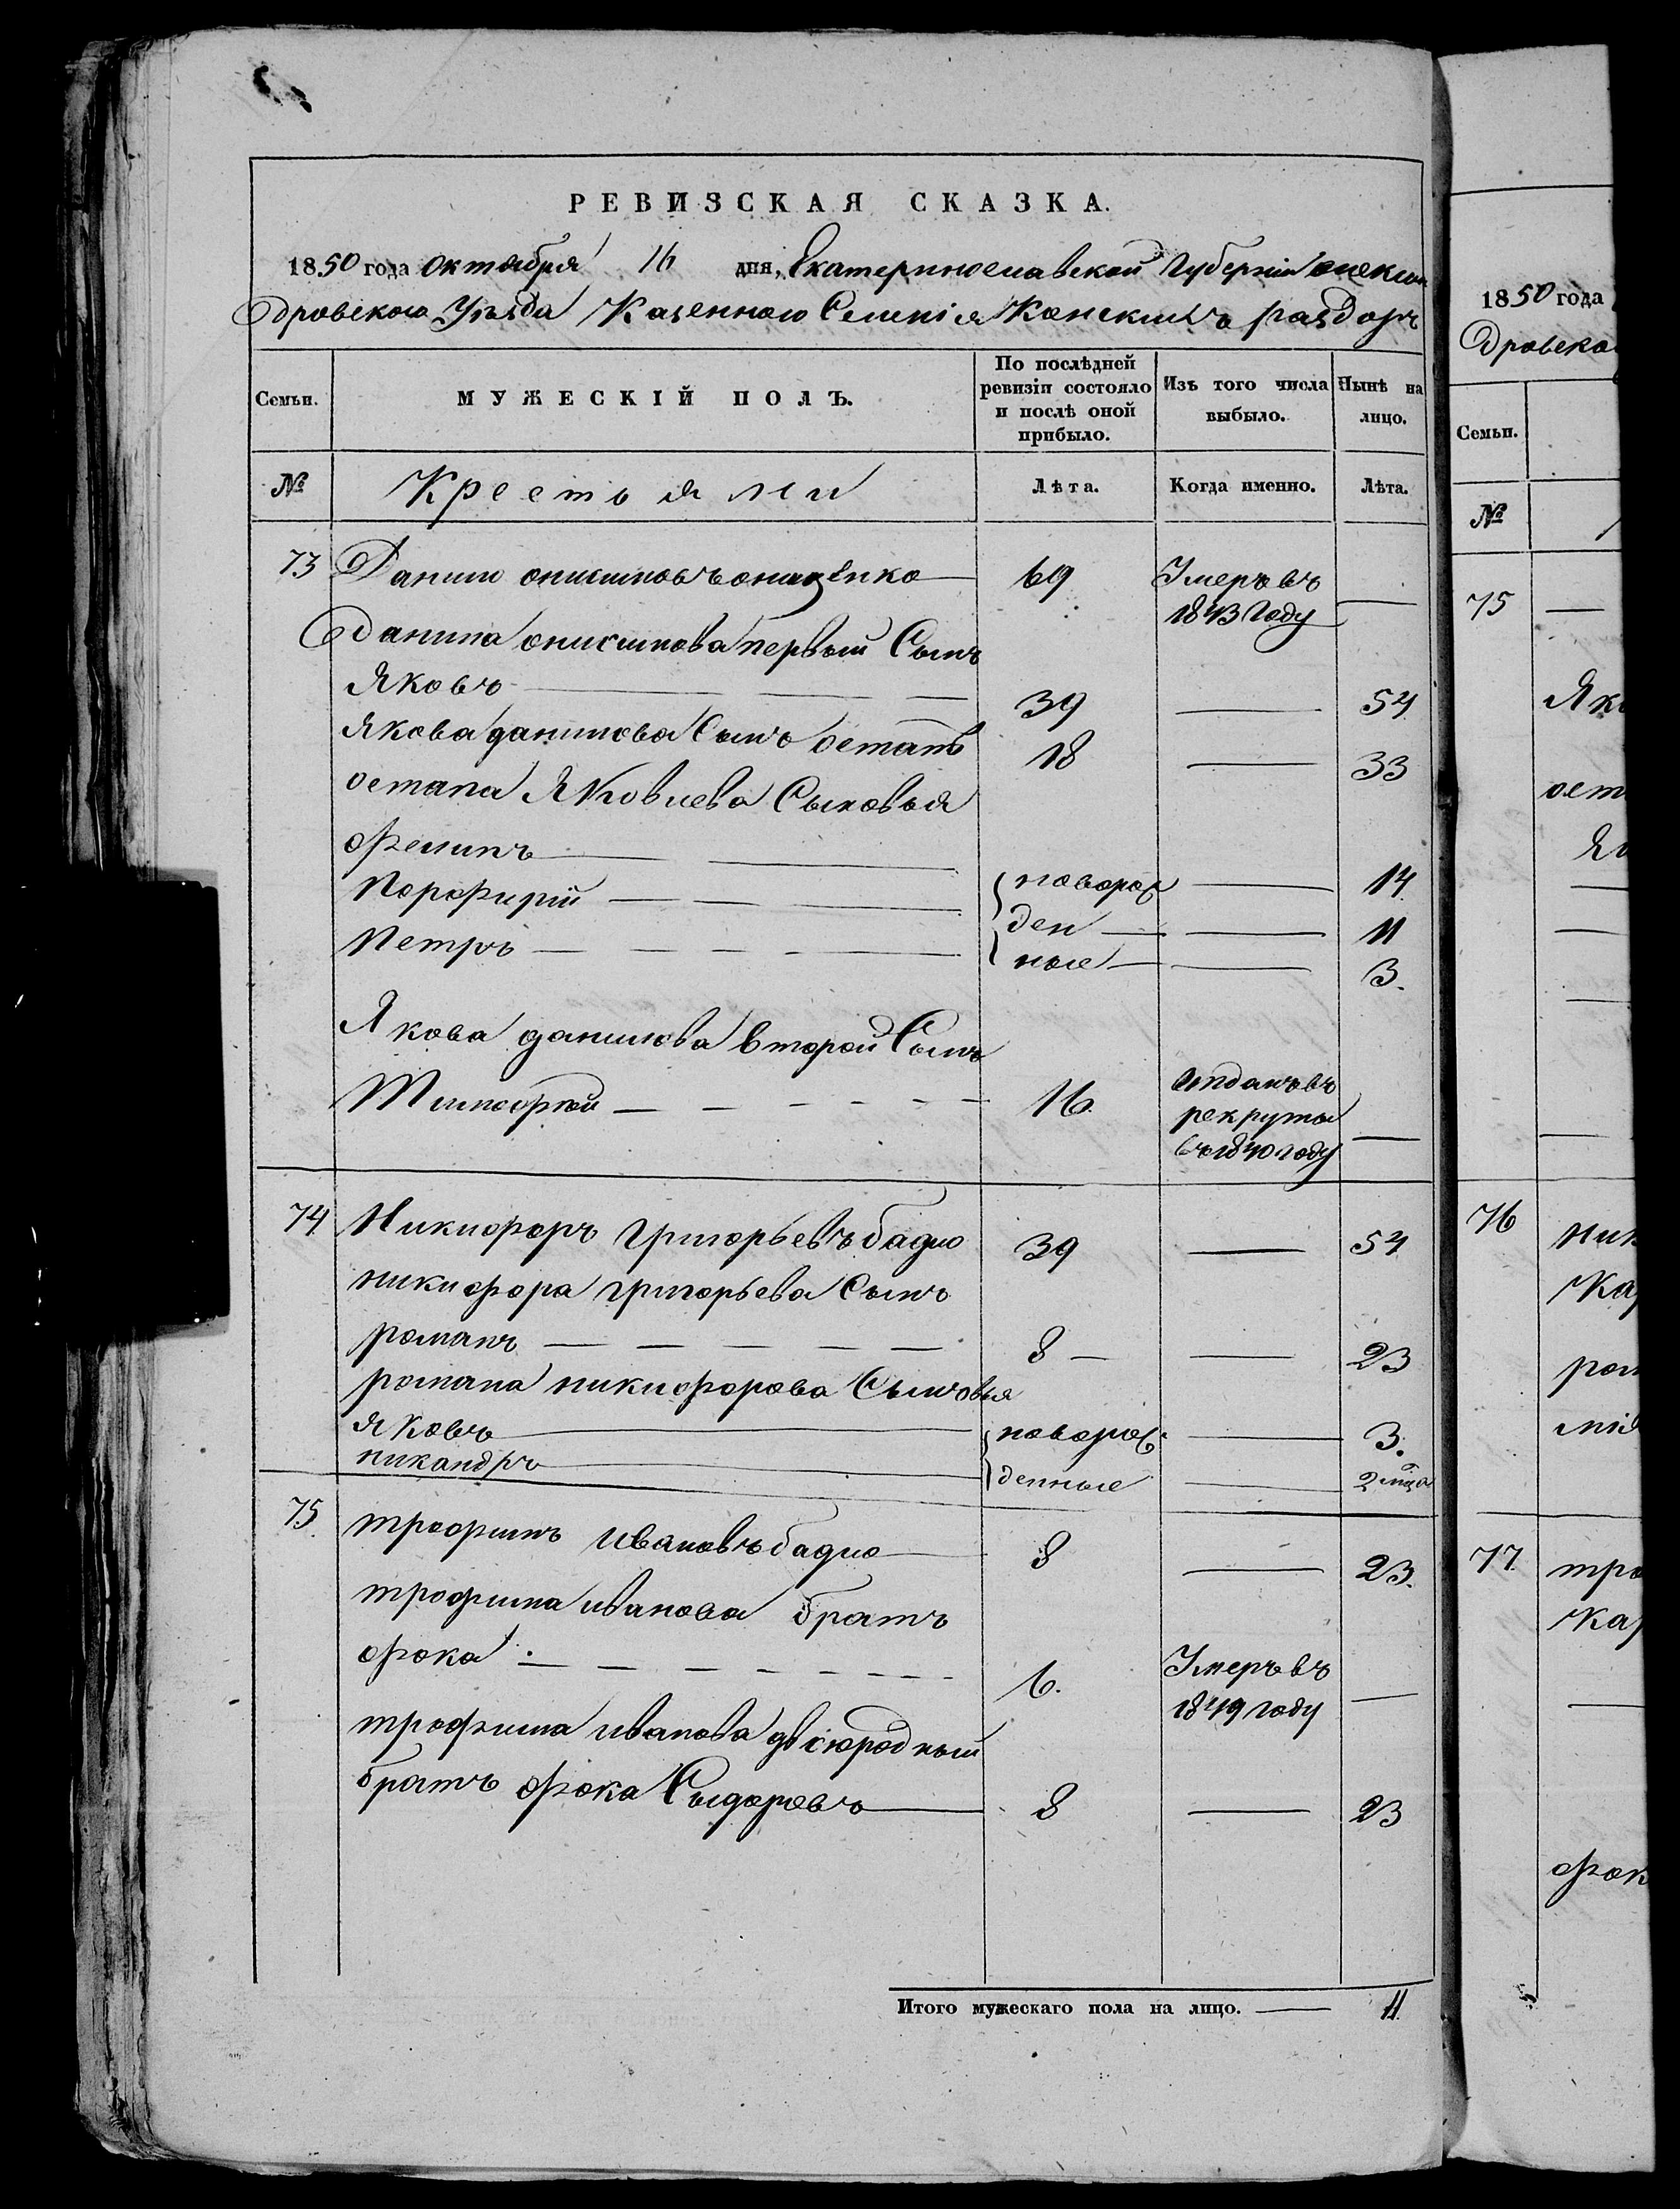 РЕВИЗСКАЯ СКАЗКА.
1850 года октября 16 дня, Екатеринославской Губерніи алексан
дровского Уезда Казенного Селенія Конскихъ раздоръ
Семьи.
МУЖЕСКІЙ ПОЛЪ.
По послѣдней ревизіи состояло и послѣ оной прибыло.
Изъ того числа выбыло.
Нынѣ на лицо.
№
Крестьяне
Лѣта.
Когда именно.
Лѣта.
73 Данило онисимовъ онищенко — 69 Умеръ въ
1843 году —
данила онисимова первый Сынъ
Яковъ — 39 — 54
Якова данилова Сынъ остапъ 18 — 33
остапа Яковлева Сыновья
филипъ — новорож — 14
Порофирій — ден — 11
Петръ — ные — 3.
Якова данилова второй Сынъ
Тимофей — 16. отданъ въ
рекруты
въ 1840 году —
74 Никифоръ григорьевъ бадло 39 — 54
никифора григорьева Сынъ
романъ — 8 — — 23
романа никифорова Сыновья
Яковъ — новорож — 3.
никандръ — денные — 2 мца
75. трофимъ ивановъ бадло — 8 — 23.
трофима иванова братъ
фока — 6. Умеръ въ
1849 году —
трофима иванова двоюродный
братъ фока Сыдоровъ — 8 — 23
Итого мужескаго пола на лицо. — 11.
1850 года
дровско
Семьи.
№
75 —
Як
ост
Як
76 ник
Ка
ром
77. тро
Ка
фок